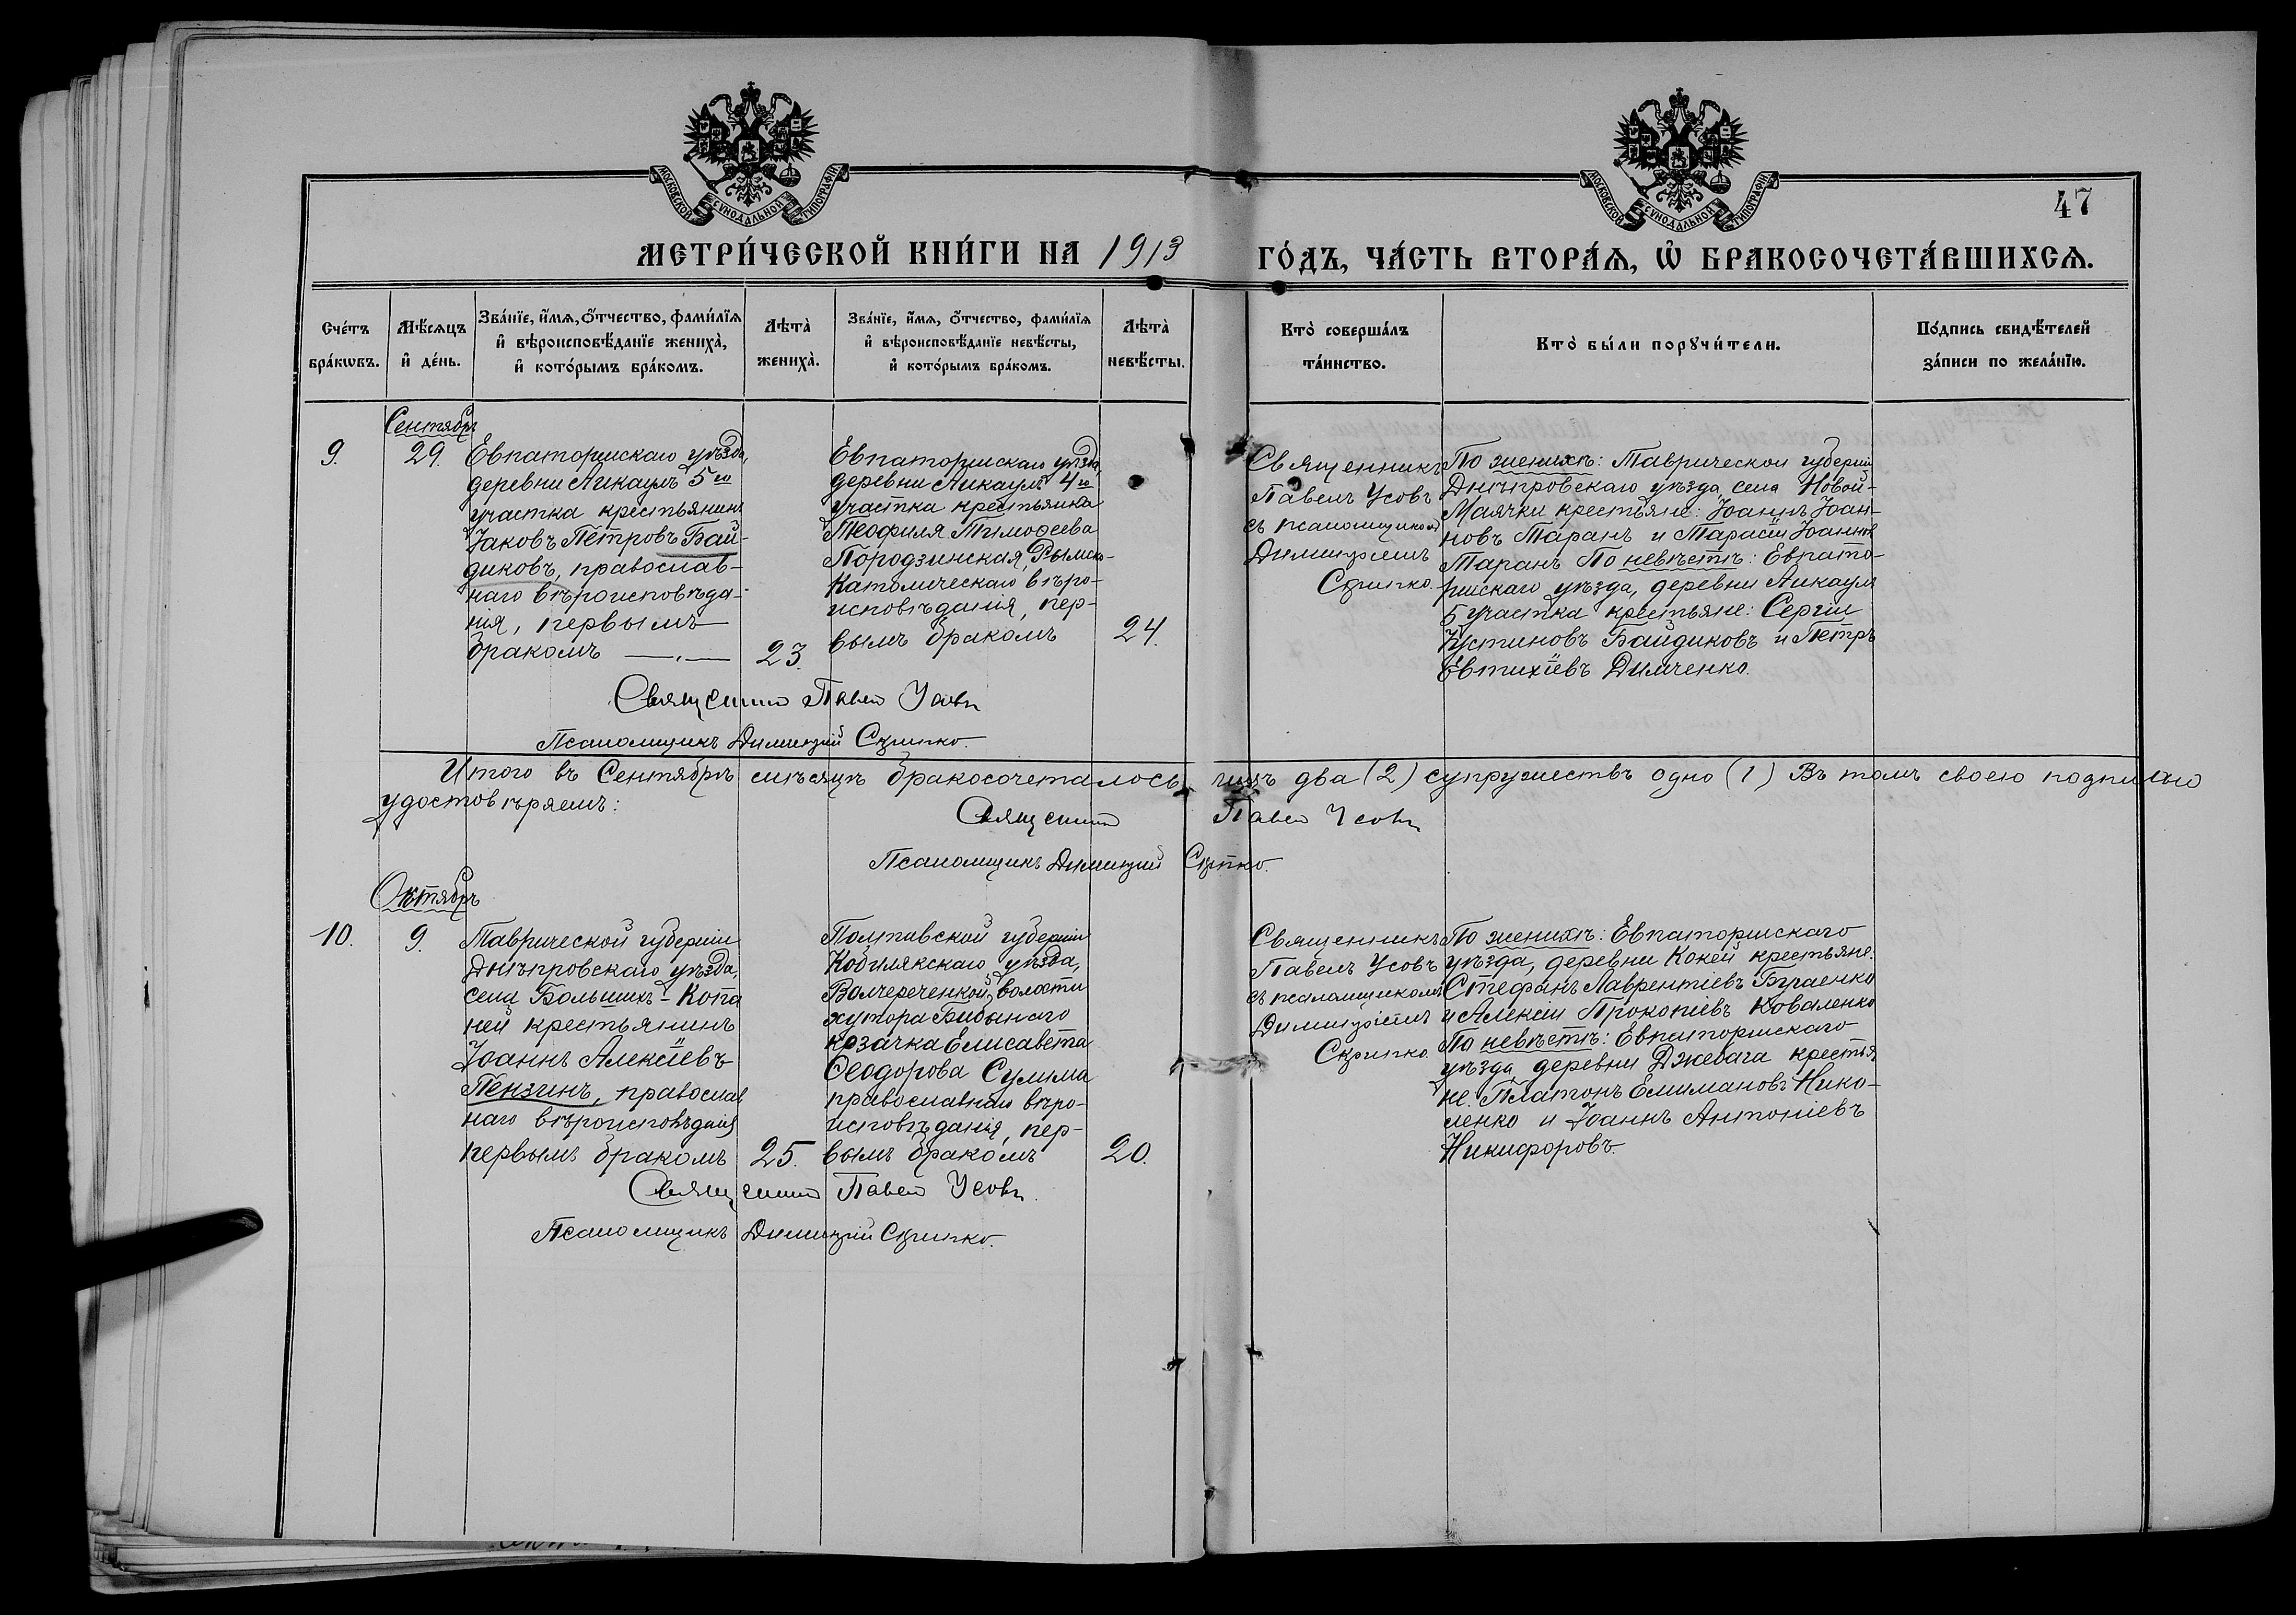 МОСКОВСКОЙ СУНОДАЛЬНОЙ ТИПОГРАФІИ
МОСКОВСКОЙ СУНОДАЛЬНОЙ ТИПОГРАФІИ
47
МЕТРИ́ЧЕСКОЙ КНИ́ГИ НА 1913 ГО́ДЪ, ЧА́СТЬ ВТОРА́Ѧ, Ѡ҆ БРАКОСОЧЕТА́ВШИХСѦ.
Сче́тъ
бра́кѡвъ.
Мѣ́сяцъ
и҆ де́нь.
Зва́нїе, и҆́мѧ, ѻ҆́тчество, фами́лїѧ
и҆ вѣроисповѣ́данїе жениха̀,
и҆ кото́рымъ бра́комъ.
Лѣта̀
жениха̀.
Зва́нїе, и҆́мѧ, ѻ҆́тчество, фами́лїѧ
и҆ вѣроисповѣ́данїе невѣ́сты,
и҆ кото́рымъ бра́комъ.
Лѣта̀
невѣ́сты.
Кто̀ соверша́лъ
та́инство.
Кто̀ бы́ли порꙋчи́тели.
По́дпись свидѣ́телей
за́писи по жела́нїю.
Сентябрь
9.
29.
Евпаторійскаго уѣзда,
деревни Аикаулъ 5го
участка крестьянинъ
Іаковъ Петровъ Бай-
диковъ, православ-
наго вѣроисповѣда-
нія, первымъ
бракомъ —„—
23.
Евпаторійскаго уѣзда
деревни Аикаулъ 4го
участка крестьянка
Теофиля Тимоѳеева
Породзинская, Римско-
Католическаго вѣро-
исповѣданія, пер-
вымъ бракомъ
24.
Священникъ
Павелъ Усовъ
съ псаломщикомъ
Димитріемъ
Скрипко.
По женихѣ: Таврической губерніи
Днѣпровскаго уѣзда, села Новой-
Маячки крестьяне: Іоаннъ Іоан-
новъ Таранъ и Тарасій Іоанновъ
Таранъ По невѣстѣ: Евпато-
рійскаго уѣзда, деревни Аикаулъ
5 участка крестьяне: Сергій
Іустиновъ Байдиковъ и Петръ
Евтихіевъ Димченко.
Священникъ Павелъ Усовъ
Псаломщикъ Димитрій Скрипко.
Итого въ Сентябрѣ мѣсяцѣ бракосочеталось лицъ два (2) супружествъ одно (1) Въ томъ своею подписью
удостовѣряемъ:
Священникъ Павелъ Усовъ
Псаломщикъ Димитрій Скрипко.
Октябрь
10.
9.
Таврической губерніи
Днѣпровскаго уѣзда,
села Большихъ-Копа
ней крестьянинъ
Іоаннъ Алексіевъ
Пензинъ, православ
наго вѣроисповѣданія
первымъ бракомъ
25.
Полтавской губерніи
Кобилякскаго уѣзда,
Волчереченкой, волости
хутора
козачка Елисавета
Ѳеодорова Сулима
православнаго вѣро-
исповѣданія, пер-
вымъ бракомъ
20.
Священникъ
Павелъ Усовъ
съ псаломщикомъ
Димитріемъ
Скрипко.
По женихѣ: Евпаторійскаго
уѣзда, деревни Кокей крестьяне:
Стефанъ Лаврентіевъ Бугаенко
и Алексій Прокопіевъ Коваленко
По невѣстѣ: Евпаторійскаго
уѣзда, деревни Джебага крестья
не: Платонъ Емилиановъ Нико-
ленко и Іоаннъ Антоніевъ
Никифоровъ.
Священникъ Павелъ Усовъ.
Псаломщикъ Димитрій Скрипко.